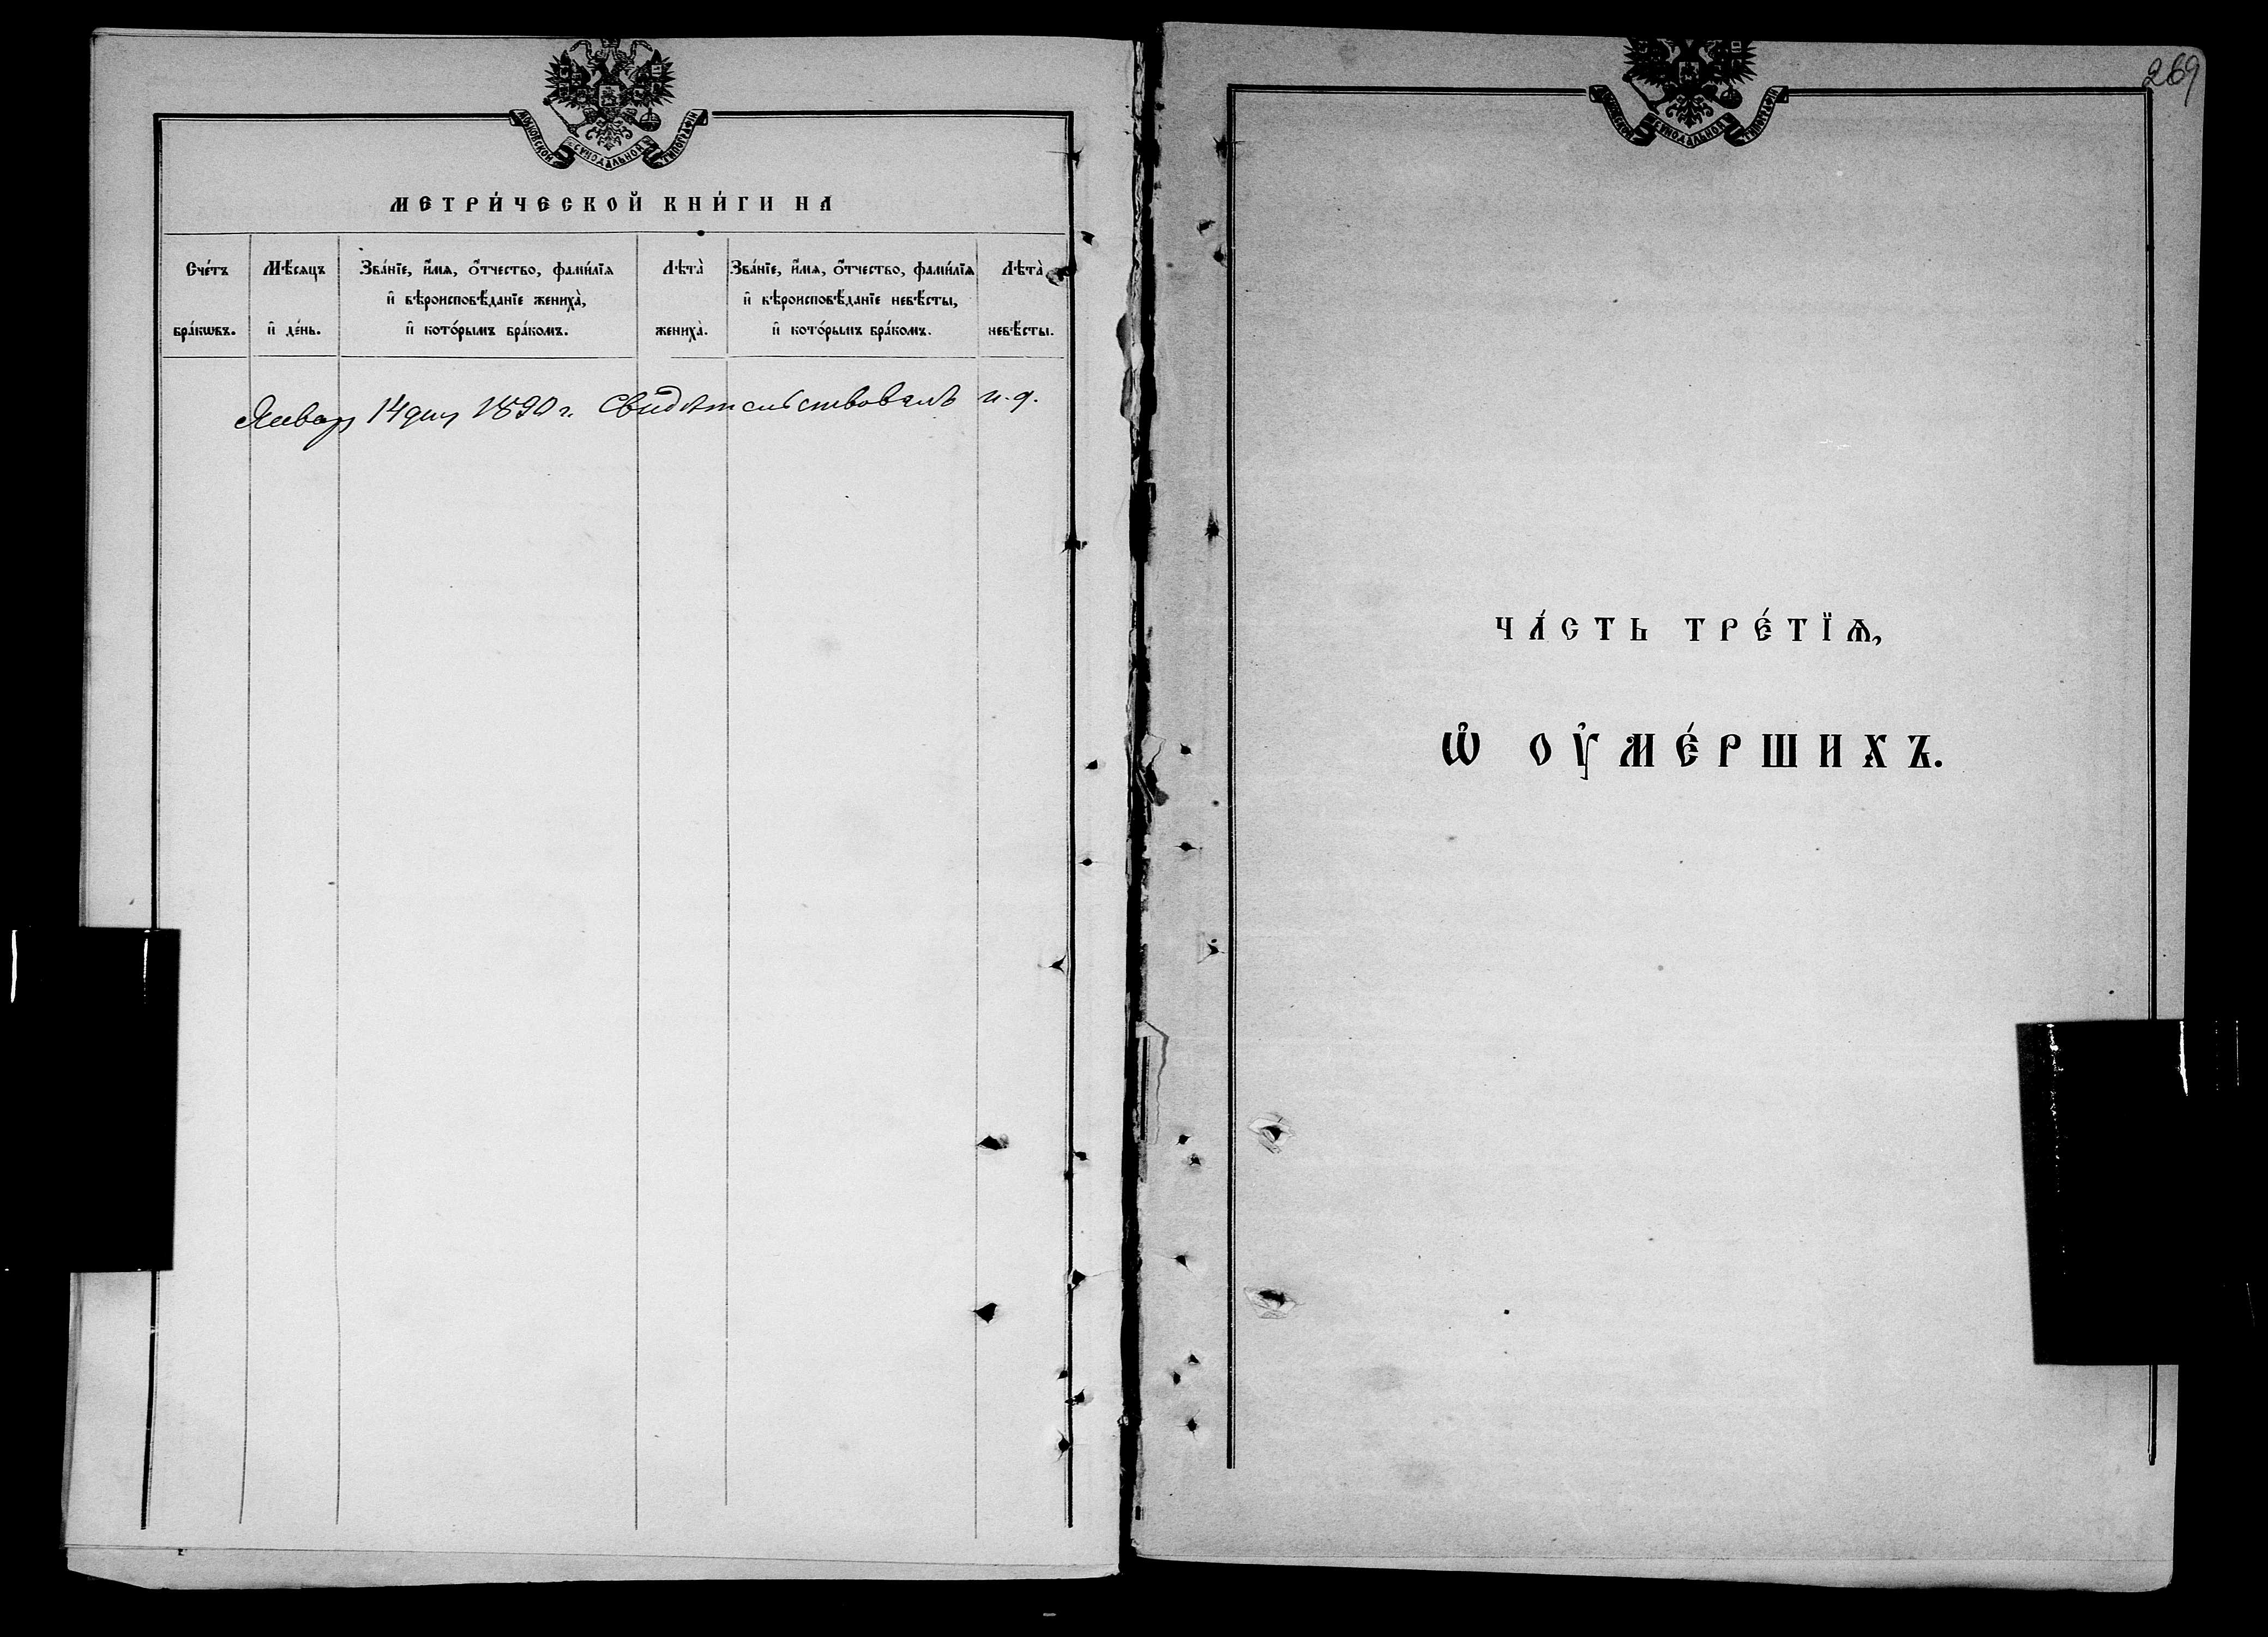 МОСКОВСКОЙ СѴНОДАЛЬНОЙ ТИПОГРАФІИ
МЕТРИ́ЧЕСКОЙ КНИ́ГИ НА
Сче́тъ бра́кѡвъ.
Мѣ́сяцъ и҆ де́нь.
Зва́нїе, и҆́мѧ, о҆́тчество, фами́лїѧ
и҆ вѣроисповѣ́данїе жениха̀,
и҆ кото́рымъ бра́комъ.
Лѣта̀ жениха̀.
Зва́нїе, и҆́мѧ, о҆́тчество, фами́лїѧ
и҆ вѣроисповѣ́данїе невѣ́сты,
и҆ кото́рымъ бра́комъ.
Лѣта̀ невѣ́сты.
Январ 14 дня 1890 г. Свидѣтельствовалъ и. д.
269
МОСКОВСКОЙ СѴНОДАЛЬНОЙ ТИПОГРАФІИ
ЧА́СТЬ ТРЕ́ТЇѦ,
Ѡ҆ ОУ҆МЕ́РШИХЪ.